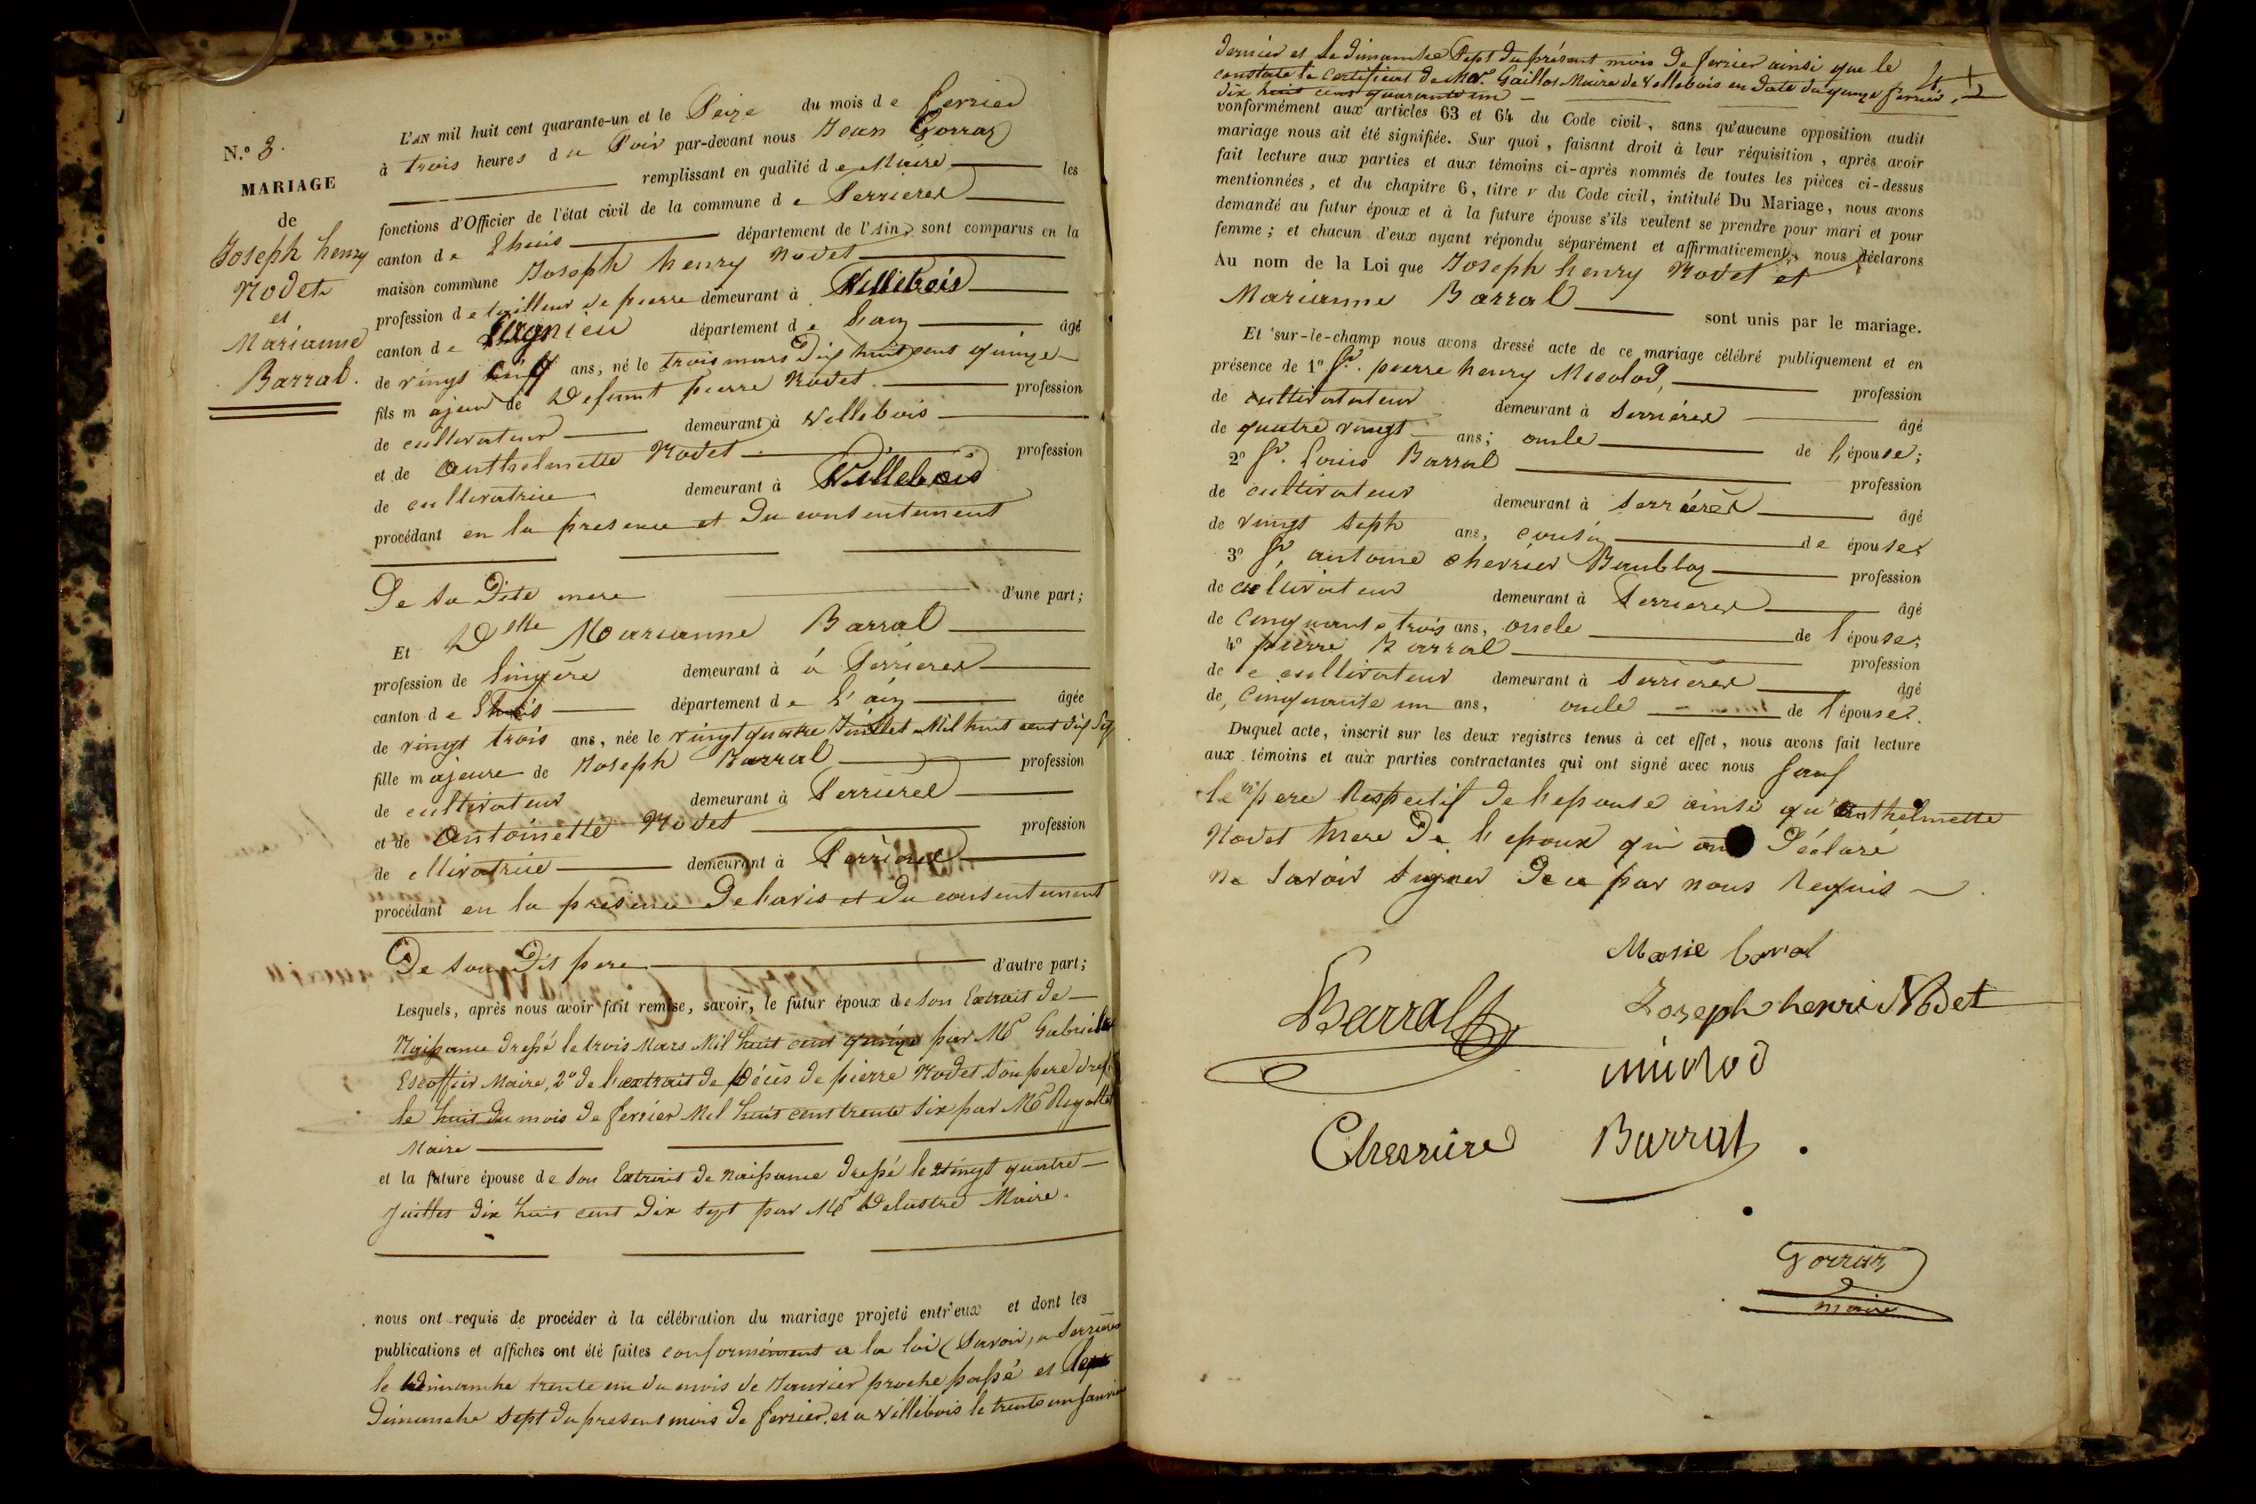 N.º 3.
MARIAGE
de
Joseph henry
Nodet
et
Marianne
Barral.
L'AN mil huit cent quarante-un et le Seize du mois de fevrier
à trois heures du Soir par-devant nous Jean Gorraz
remplissant en qualité de Maire les
fonctions d'Officier de l'état civil de la commune de Serrieres
canton de Lhuis département de l'Ain, sont comparus en la
maison commune Joseph henry Nodet
profession de tailleur de pierre demeurant à Villebois
canton de Lagnieu département de L'ain âgé
de vingt cinq ans, né le trois mars Dix huit cent quinze
fils majeur de Defunt pierre Nodet profession
de cultivateur demeurant à villebois
et de anthelmette Nodet profession
de cultivatrice demeurant à Villebois
procédant en la presence et du consentement
De sa Dite mere d'une part;
Et Delle Marianne Barral
profession de lingère demeurant à á Serrieres
canton de Lhuis département de L'ain âgée
de vingt trois ans, née le vingt quatre Juillet Mil huit cent dix Sept
fille majeure de Joseph Barral profession
de cultivateur demeurant à Serrieres
et de antoinette Nodet profession
de cltivatrice demeurant à Serrieres
procédant en la présence De l'avis et du consentement
De son Dit pere d'autre part;
Lesquels, après nous avoir fait remise, savoir, le futur époux de son Extrait de
Naissance dressé le trois Mars Mil huit cent quinze par Mr Gabriel
Escoffier Maire, 2º de l'extrait de décès de pierre Nodet son pere dressé
le huit du mois de fevrier Mil huit cent trente six par Mr
Maire
et la future épouse de son Extrait de naissance dressé le vingt quatre
Juillet dix huit cent dix sept par Mr Delastre Maire.
nous ont requis de procéder à la célébration du mariage projeté entr'eux et dont les
publications et affiches ont été faites conformément a la loi (Savoir, a Serrieres
le Dimanche trente un du mois de Janvier proche passé et le
Dimanche sept du present mois de fevrier, et a villebois le trente un Janvier
dernier et le dimanche Sept du présent mois de fevrier ainsi que le
constate le certificat de Mr. Gaillot Maire de Villebois en date du quinze fevrier
dix huit cent quarante un
conformément aux articles 63 et 64 du Code civil, sans qu'aucune opposition audit
mariage nous ait été signifiée. Sur quoi, faisant droit à leur réquisition, après avoir
fait lecture aux parties et aux témoins ci-après nommés de toutes les pièces ci-dessus
mentionnées, et du chapitre 6, titre v du Code civil, intitulé Du Mariage, nous avons
demandé au futur époux et à la future épouse s'ils veulent se prendre pour mari et pour
femme; et chacun d'eux ayant répondu séparément et affirmativement, nous déclarons
Au nom de la Loi que Joseph henry Nodet et
Marianne Barral sont unis par le mariage.
Et sur-le-champ nous avons dressé acte de ce mariage célébré publiquement et en
présence de 1º Sr. pierre henry Micolod, profession
de cultivatateur demeurant à Serriéres âgé
de quatre vingt ans; oncle de l'épouse;
2º Sr. Louis Barral profession
de cultivateur demeurant à Serriéres âgé
de vingt septt ans, cousin de épouse;
3º Sr antoine chervier Bambloz profession
de cultivateur demeurant à Serrieres âgé
de cinquante trois ans, oncle de l'épouse;
4º pierre Barral profession
de cultivateur demeurant à Serrieres âgé
de, cinquante un ans, oncle de l'épouse.
Duquel acte, inscrit sur les deux registres tenus à cet effet, nous avons fait lecture
aux témoins et aux parties contractantes qui ont signé avec nous Sauf
le pere Respectif de l'epouse ainsi qu'anthelmette
Nodet mere De l'epoux qui ont Déclaré
ne Savoir Signer De ce par nous Requis
Marie baral
Barral
Joseph henri Nodet
micolod
Cherviere
Barral
Gorraz
maire